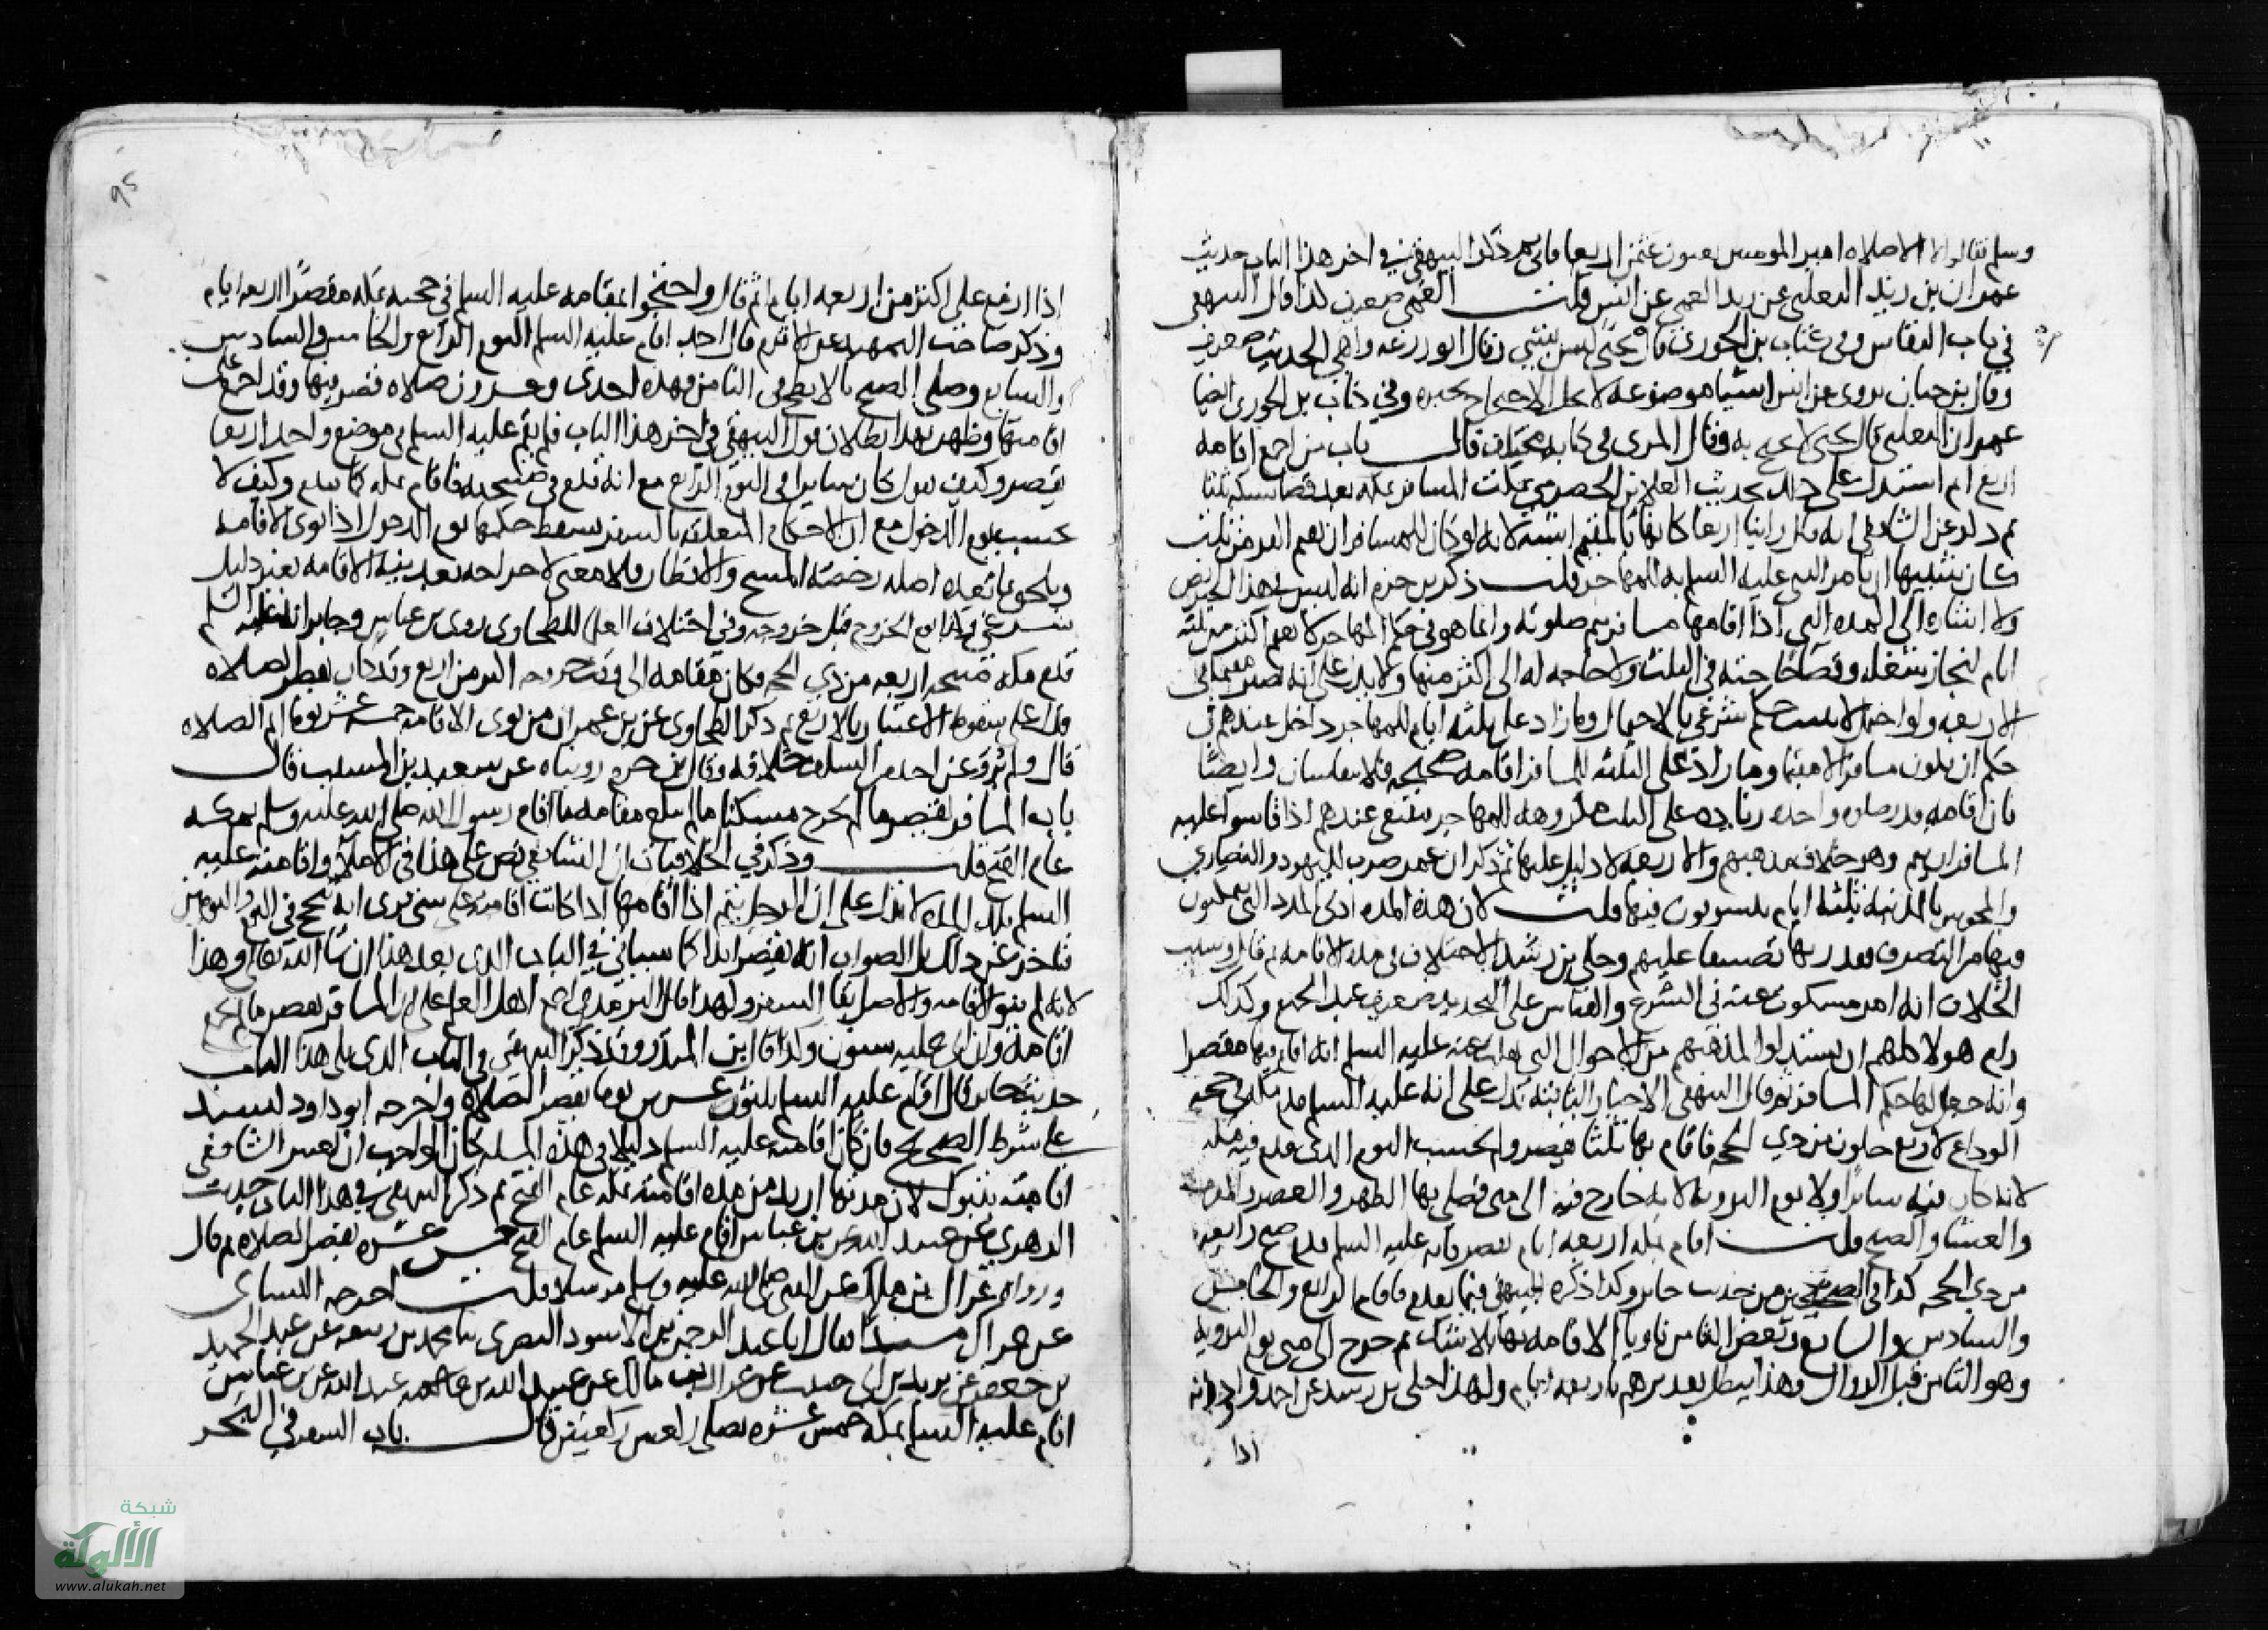 وسلم فقالوا لا الا صلاه امير المومنين يعنون عثمن اربعا فابى ثم ذكر البيهقي في اخر هذا الباب حديث
عمران بن زيد التغلبي عن زيد العمي عن انس قلت العمي ضعيف كذا قال البيهقي
في باب النفاس وفي كتاب بن الجوزي قال يحيى ليس بشي وقال ابو زرعه واهي الحديث ضعيف
وقال بن حبان يروي عن انس اشيا موضوعه لا يحل الاحتجاج بخبره وفي كتاب بن الجوزي ايضا
عمران التغلبي قال يحيى لا يحتج به وقال المزي في كتابه مختلف قال باب من اجمع اقامه
اربع اتم استدل على ذلك بحديث العلا بن الحضرمي يمكث المسافر بمكه بعد قضا نسكه ثلثا
ثم ذكر عن الشافعي انه قال راينا اربعا كانها بالمقيم اشبه لانه لو كان للمسافر ان يقيم اكثر من ثلث
كان شبيها ان يامر النبي عليه السلم به للمهاجر قلت ذكر بن حزم انه ليس في هذا الخبر نص
ولا اشاره الى المده التي اذا اقامها مسافر يتم صلوته وانما هو في حكم المهاجر لا يقيم اكثر من ثلثه
ايام لنجاز شغله وقضا حاجته في الثلث ولا حاجه له الى اكثر منها ولا يدل على انه يصير مقيما في
الاربعه ولو احتمل لا يثبت حكم شرعي بالاحتمال وما زاد على ثلثه ايام للمهاجر داخل عندهم في
حكم ان يكون مسافرا لا مقيما وما زاد على الثلثه للمسافر اقامه صحيحه فلا يتقايسان وايضا
فان اقامه قدر صلاه واحده زياده على الثلث مكروهه للمهاجر فينبغي عندهم اذا قاسوا عليه
المسافر ان يتم وهو خلاف مذهبهم والاربعه لا دليل عليها ثم ذكر ان عمر ضرب لليهود والنصاري
والمجوس بالمدينه ثلثه ايام يتسوقون فيها قلت لان هذه المده ادنى المدد التي يمكنون
فيها من التصرف فقدر بها تضييقا عليهم وحكى بن رشد الاختلاف في مده الاقامه ثم قال وسبب
الخلاف انه امر مسكوت عنه في الشرع والقياس على التحديد ضعيف عند الجميع وكذلك
رام هولا كلهم ان يستدلوا لمذهبهم من الاحوال التي نقلت عنه عليه السلم انه اقام فيها مقصرا
وانه جعل لها حكم المسافر ثم قال البيهقي الاخبار الثابته تدل على انه عليه السلم قدم مكه في حجه
الوداع لاربع خلون من ذي الحجه فاقام بها ثلثا يقصر ولم يحسب اليوم الذي قدم فيه مكه
لانه كان فيه سايرا ولا يوم الترويه لانه خارج فيه الى منى فصلى بها الظهر والعصر والمغرب
والعشا والصبح قلت اقام بمكه اربعه ايام يقصر فانه عليه السلم قدم صبح رابعه
من ذي الحجه كذا في الصحيحين من حديث جابر وكذا ذكره البيهقي فيما بعد فاقام الرابع والخامس
والسادس والسابع وبعض الثامن ناويا للاقامه بها بلا شك ثم خرج الى منى يوم الترويه
وهو الثامن قبل الزوال وهذا يبطل تقديرهم باربعه ايام ولهذا حكى بن رشد عن احمد وداود انه
اذا
95
اذا ازمع على اكثر من اربعه ايام اتم قال واحتجوا بمقامه عليه السلم في حجته بمكه مقصرا اربعه ايام
وذكر صاحب التمهيد عن الاثرم قال احمد اقام عليه السلم اليوم الرابع والخامس والسادس
والسابع وصلى الصبح بالابطح في الثامن فهذه احدى وعشرون صلاه قصر فيها وقد اجمع على
اقامتها وظهر بهذا بطلان قول البيهقي في اخر هذا الباب فلم يقم عليه السلم في موضع واحد اربعا
يقصر وكيف يقول كان سايرا في اليوم الرابع مع انه قدم في صبيحته فاقام بمكه كما تقدم وكيف لا
يحسب يوم الدخول مع ان الاحكام المتعلقه بالسفر يسقط حكمها يوم الدخول اذا نوى الاقامه
ويلحق بما بعده اصله رخصه المسح والافطار فلا معنى لاخراجه بعد نيه الاقامه بغير دليل
شرعي في الرابع الخروج قبل خروجه وفي اختلاف العلما للطحاوي روى بن عباس وجابر انه عليه السلم
قدم مكه صبيحه اربعه من ذي الحجه فكان مقامه الى وقت خروجه اكثر من اربع وقد كان يقصر الصلاه
فدل على سقوط الاعتبار بالاربع ثم ذكر الطحاوي عن بن عمر ان من نوى الاقامه خمسه عشر يوما اتم الصلاه
قال ولم يرو عن احد من السلف خلافه وقال بن حزم رويناه عن سعيد بن المسيب قال
باب المسافر يقصر ما لم يجمع مسكنا ما لم يبلغ مقامه ما اقام رسول الله صلى الله عليه وسلم بمكه
عام الفتح قلت وذكر في الخلافيات ان الشافعي نص على هذا في الاملا واقامته عليه
السلم تلك المده لا يدل على ان الرجل يتم اذا اقامها اذا كانت اقامته على شي يرى انه ينجح في اليوم واليومين
فتاخر عن ذلك بل الصواب انه يقصر ابدا كما سياتي في الباب الذي بعد هذا ان شا الله تعالى وهذا
لانه لم ينو الاقامه والاصل بقا السفر ولهذا قال الترمذي اجمع اهل العلم على ان المسافر يقصر ما لم يجمع
اقامه وان اتى عليه سنون وكذا قال ابن المنذر وقد ذكر البيهقي في الباب الذي يلي هذا الباب
حديث جابر قال اقام عليه السلم بتبوك عشرين يوما يقصر الصلاه واخرجه ابو داود بسند
على شرط الصحيح فان كان اقامته عليه السلم دليلا في هذه المسله كان الواجب ان يعتبر الشافعي
اقامته بتبوك لان مدتها ازيد من مده اقامته بمكه عام الفتح ثم ذكر البيهقي في هذا الباب حديث
الزهري عن عبيد الله عن بن عباس اقام عليه السلم عام الفتح خمس عشره يقصر الصلاه ثم قال
ورواه عراك بن مالك عن النبي صلى الله عليه وسلم مرسلا قلت اخرجه النساى
عن عراك مسندا فقال انا عبد الرحمن بن الاسود البصري نا محمد بن ربيعه عن عبد الحميد
بن جعفر عن يزيد بن ابي حبيب عن عراك بن مالك عن عبيد الله بن عبد الله عن بن عباس
اقام عليه السلم بمكه خمس عشره يصلي ركعتين ركعتين قال باب السفر في البحر
شبكة
الألوكة
www.alukah.net